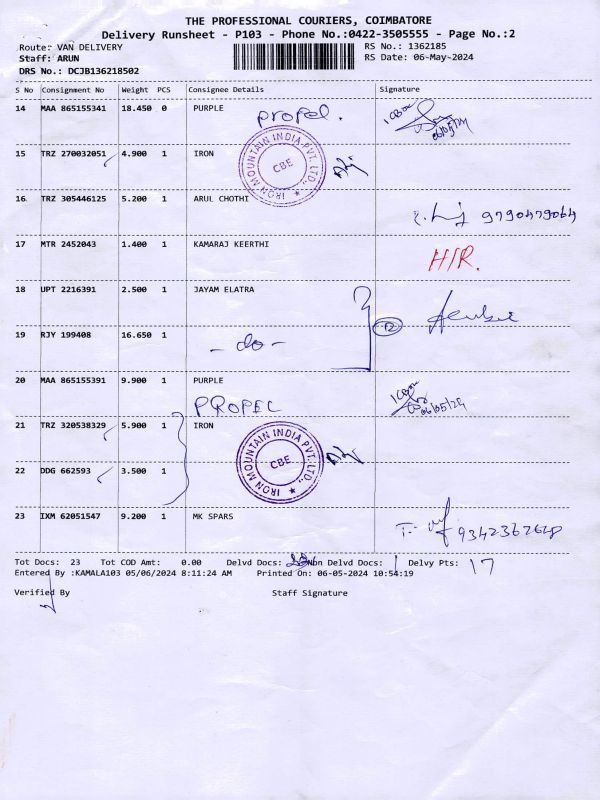 THE PROFESSIONAL COURIERS, COIMBATORE
Delivery Runsheet - P103 - Phone No.:0422-3505555 - Page No.:2
Route: VAN DELIVERY
RS No.: 1362185
Staff: ARUN
RS Date: 06-May-2024
DRS No.: DCJB136218502
S No Consignment No Weight PCS Consignee Details Signature
14 MAA 865155341 18.450 0 PURPLE
propel.
06/05/24
15 TRZ 270032051 4.900 1 IRON
IRON MOUNTAIN INDIA PVT. LTD., ★
CBE
16 TRZ 305446125 5.200 1 ARUL CHOTHI
9790479064
17 MTR 2452043 1.400 1 KAMARAJ KEERTHI
H/R.
18 UPT 2216391 2.500 1 JAYAM ELATRA
12
19 RJY 199408 16.650 1
- do -
20 MAA 865155391 9.900 1 PURPLE
PROPEL
06/05/24
21 TRZ 320538329 5.900 1 IRON
IRON MOUNTAIN INDIA PVT. LTD., ★
CBE
22 DDG 662593 3.500 1
23 IXM 62051547 9.200 1 MK SPARS
9342362628
Tot Docs: 23 Tot COD Amt: 0.00 Delvd Docs: Non Delvd Docs: 1 Delvy Pts: 17
Entered By :KAMALA103 05/06/2024 8:11:24 AM Printed On: 06-05-2024 10:54:19
Verified By Staff Signature